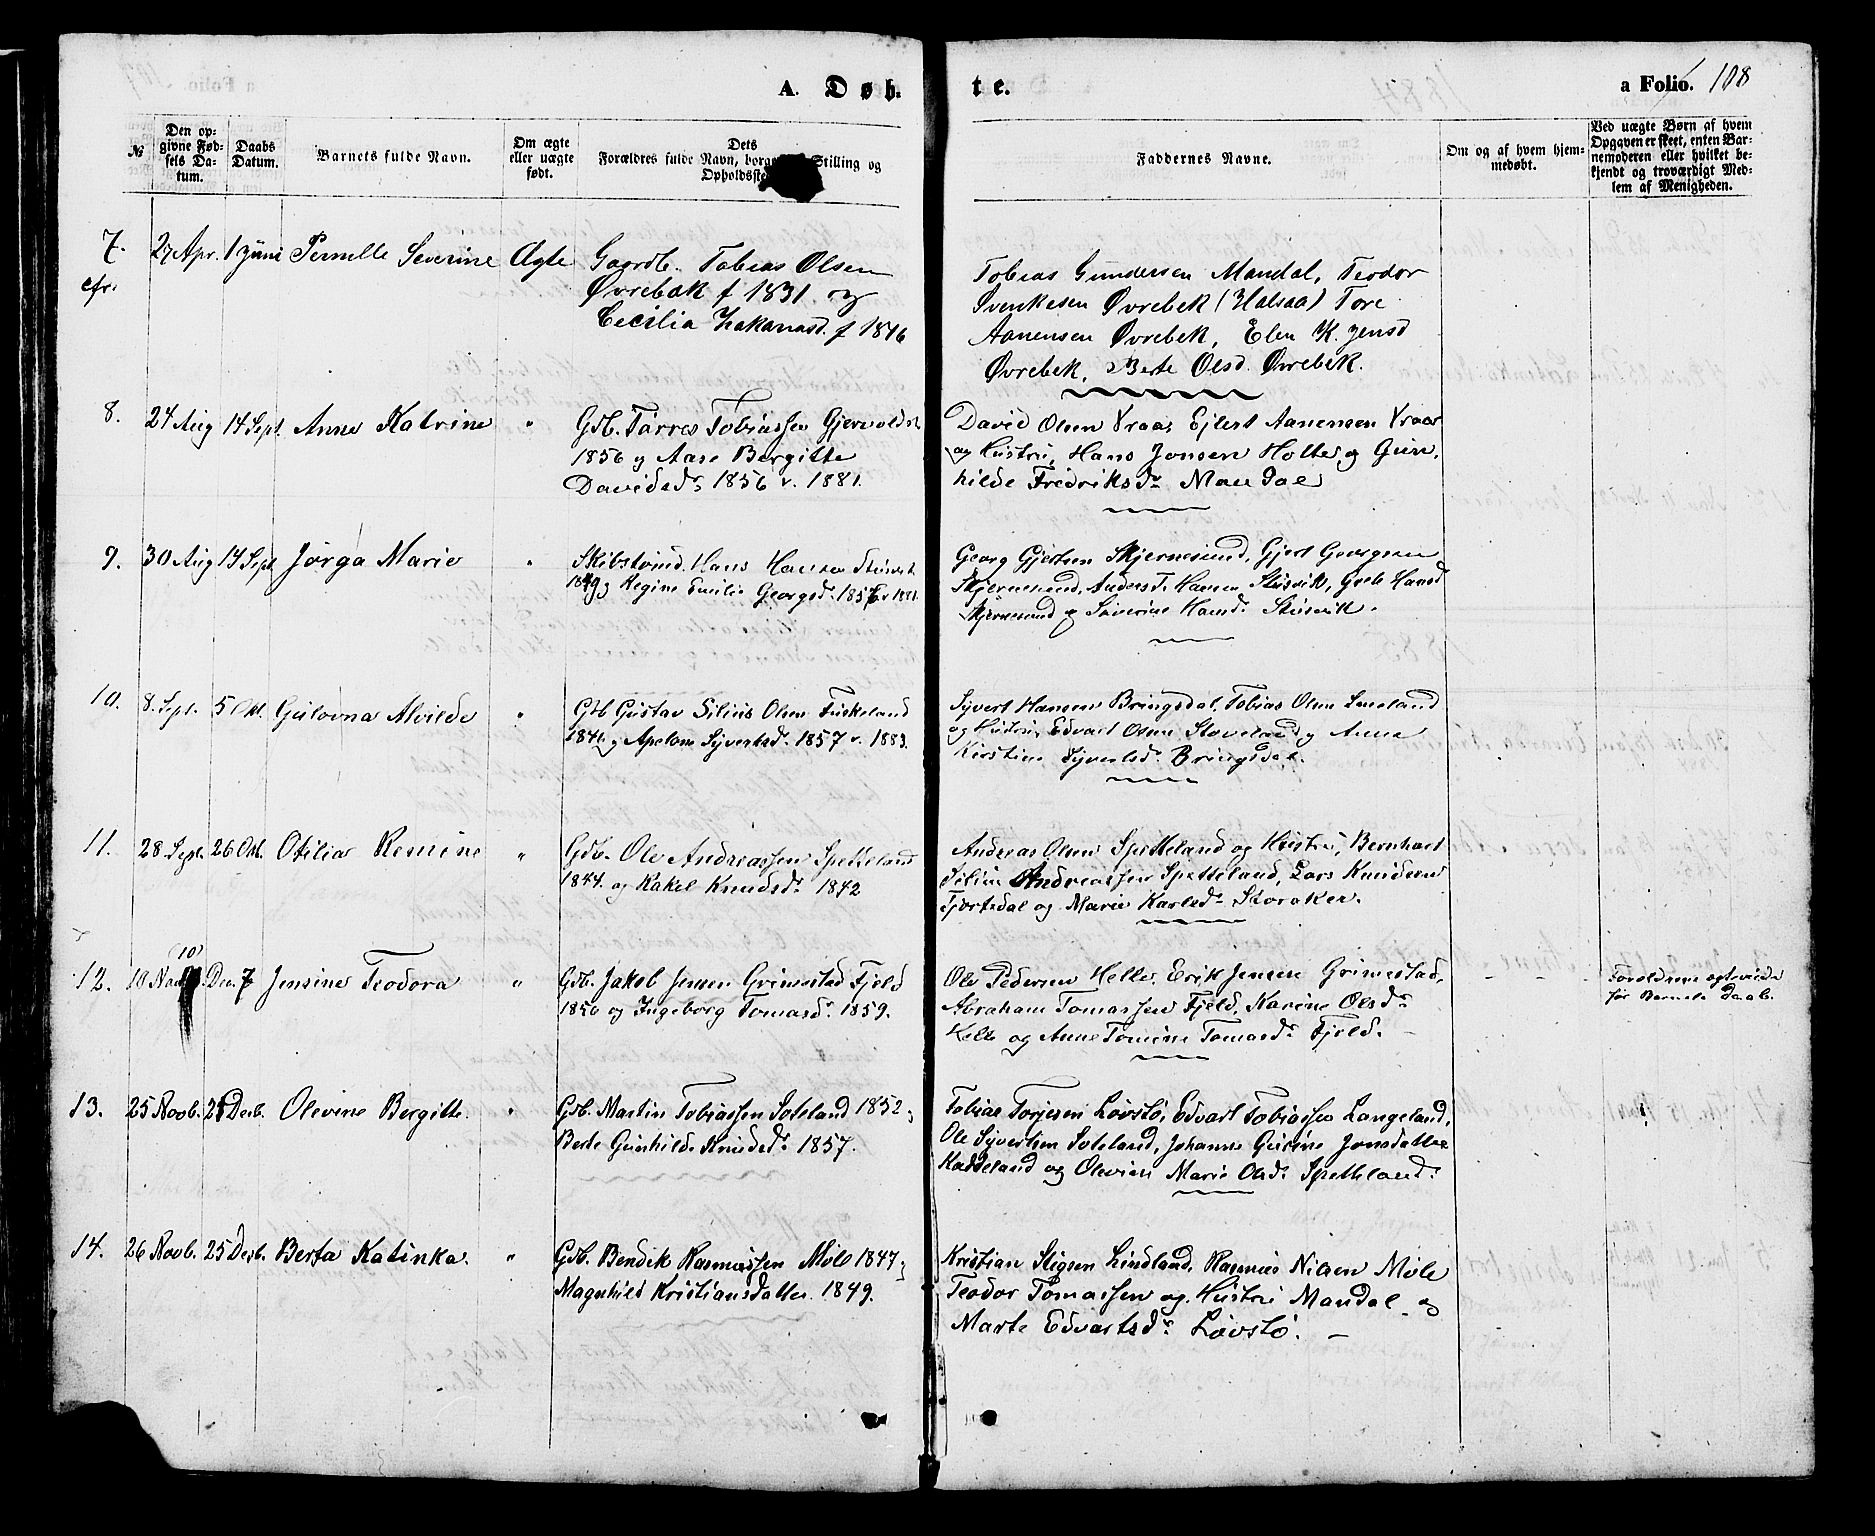 A. Døb.
te.
a Folio. 108
№
Den op-
givne Fød-
sels Da-
tum.
Daabs
Datum.
Barnets fulde Navn.
Om ægte
eller uægte
født.
Dets
Forældres fulde Navn, borg Stilling og
Opholdsste
Faddernes Navne.
Om og af hvem hjem-
medøbt.
Ved uægte Børn af hvem
Opgaven er skeet, enten Bar-
nemoderen eller hvilket be-
kjendt og troværdigt Med-
lem af Menigheden.
7. 27 Apr. 1 Juni Pernille Severine Ægte Gaardb. Tobias Olsen
cfr.
Øvrebæk f 1831 og
Cecilia f 1846
Tobias Gundersen Mandal, Teodor
Svenkesen Øvrebek (Halsaa) Tore
Aanensen Øvrebek, Elen K. Jensd
Øvrebek, Berte Olsd. Øvrebek.
8. 24 Aug 14 Sept. Anne Katrine " Gdb. Tarres Tobiassen
1856 g Aase Bergitte
Davidsdr 1856 v. 1881.
David Olsen Vraas Ejlert Aanensen Vraas
og Hustru, Hans Jensen Holte og Gun-
hilde Fredriksdr Mandal
9. 30 Aug 14 Sept Jørga Marie " Skibstømd. Hans Hansen
1849 g Regine Emilie Georgsdr.
Georg Gjertsen Skjernesund, Gjert Georgsen
Skjernesund, Anders T. Hansen Stusvik, Grete Hansd
Skjernesund g Severine Hansdr Stusvik.
10. 8. Sept. 5 Okt. Gulovna Alvilde " Gdb Gustav Silius Olsen Fuskeland
g Apelone Syvertsdr. 1857 v. 1883.
Syvert Hansen Bringsdal, Tobias Olsen
og Hustru, Edvart Olsen g Anna
Kirstine Syvertsdr. Bringsdal.
11. 28 Sept. 26 Okt. Otilia Remine " Gdb. Ole Andreassen Spetteland
1844. og Rakel Knudsdr. 1842
Andreas Olsen Spetteland og Hustru, Bernhart
Silius Andreassen Spetteland, Lars Knudsen
Fjortedal og Marie Karlsdr. Storaker.
10
12. 10 Nov Dec. 7 Jensine Teodora " Gdb. Jakob Jensen Grimestad Fjeld
1850 og Ingeborg Tomasdr. 1859.
Ole Pedersen Helle, Erik Jensen Grimestad,
Abraham Tomassen Fjeld, Karine Olsdr
Helle og Anne Tomine Tomasdr. Fjeld. -
Forældrene ægteviede
før Barnets Daab.
13. 25 Novb. 25 Decb. Olevine Bergitte. " Gdb. Martin Tobiassen Soteland 1852 g
Berte Gunhilde Knudsdr. 1857.
Tobias Torjesen Løvstø, Edvart Tobiassen Langeland,
Ole Syvertsen Soteland, Johanne Gurine Jonsdatter
Kaddeland og Olevine Marie Olsdr. Spetteland.
14. 26 Novb. 25 Decb. Berta Katinka. " Gdb. Bendik Rasmussen Møle 1847 g
Magnhild Kristiansdatter. 1849.
Kristian Stigsen Lindland, Rasmus Nilsen Møle
Teodor Tomassen og Hustru Mandal og
Marte Edvartsdr. Løvstø. -